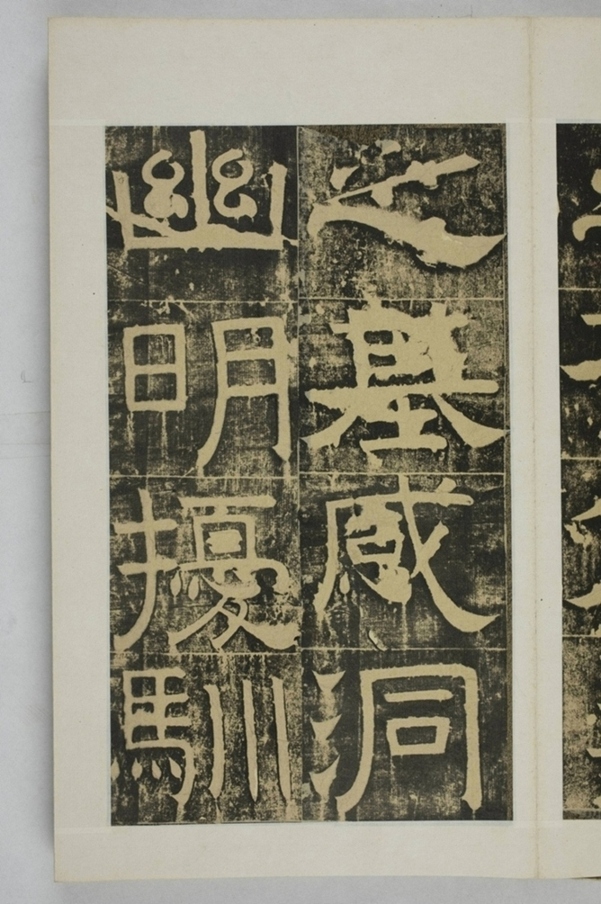 之墓感洞
幽明擾馴